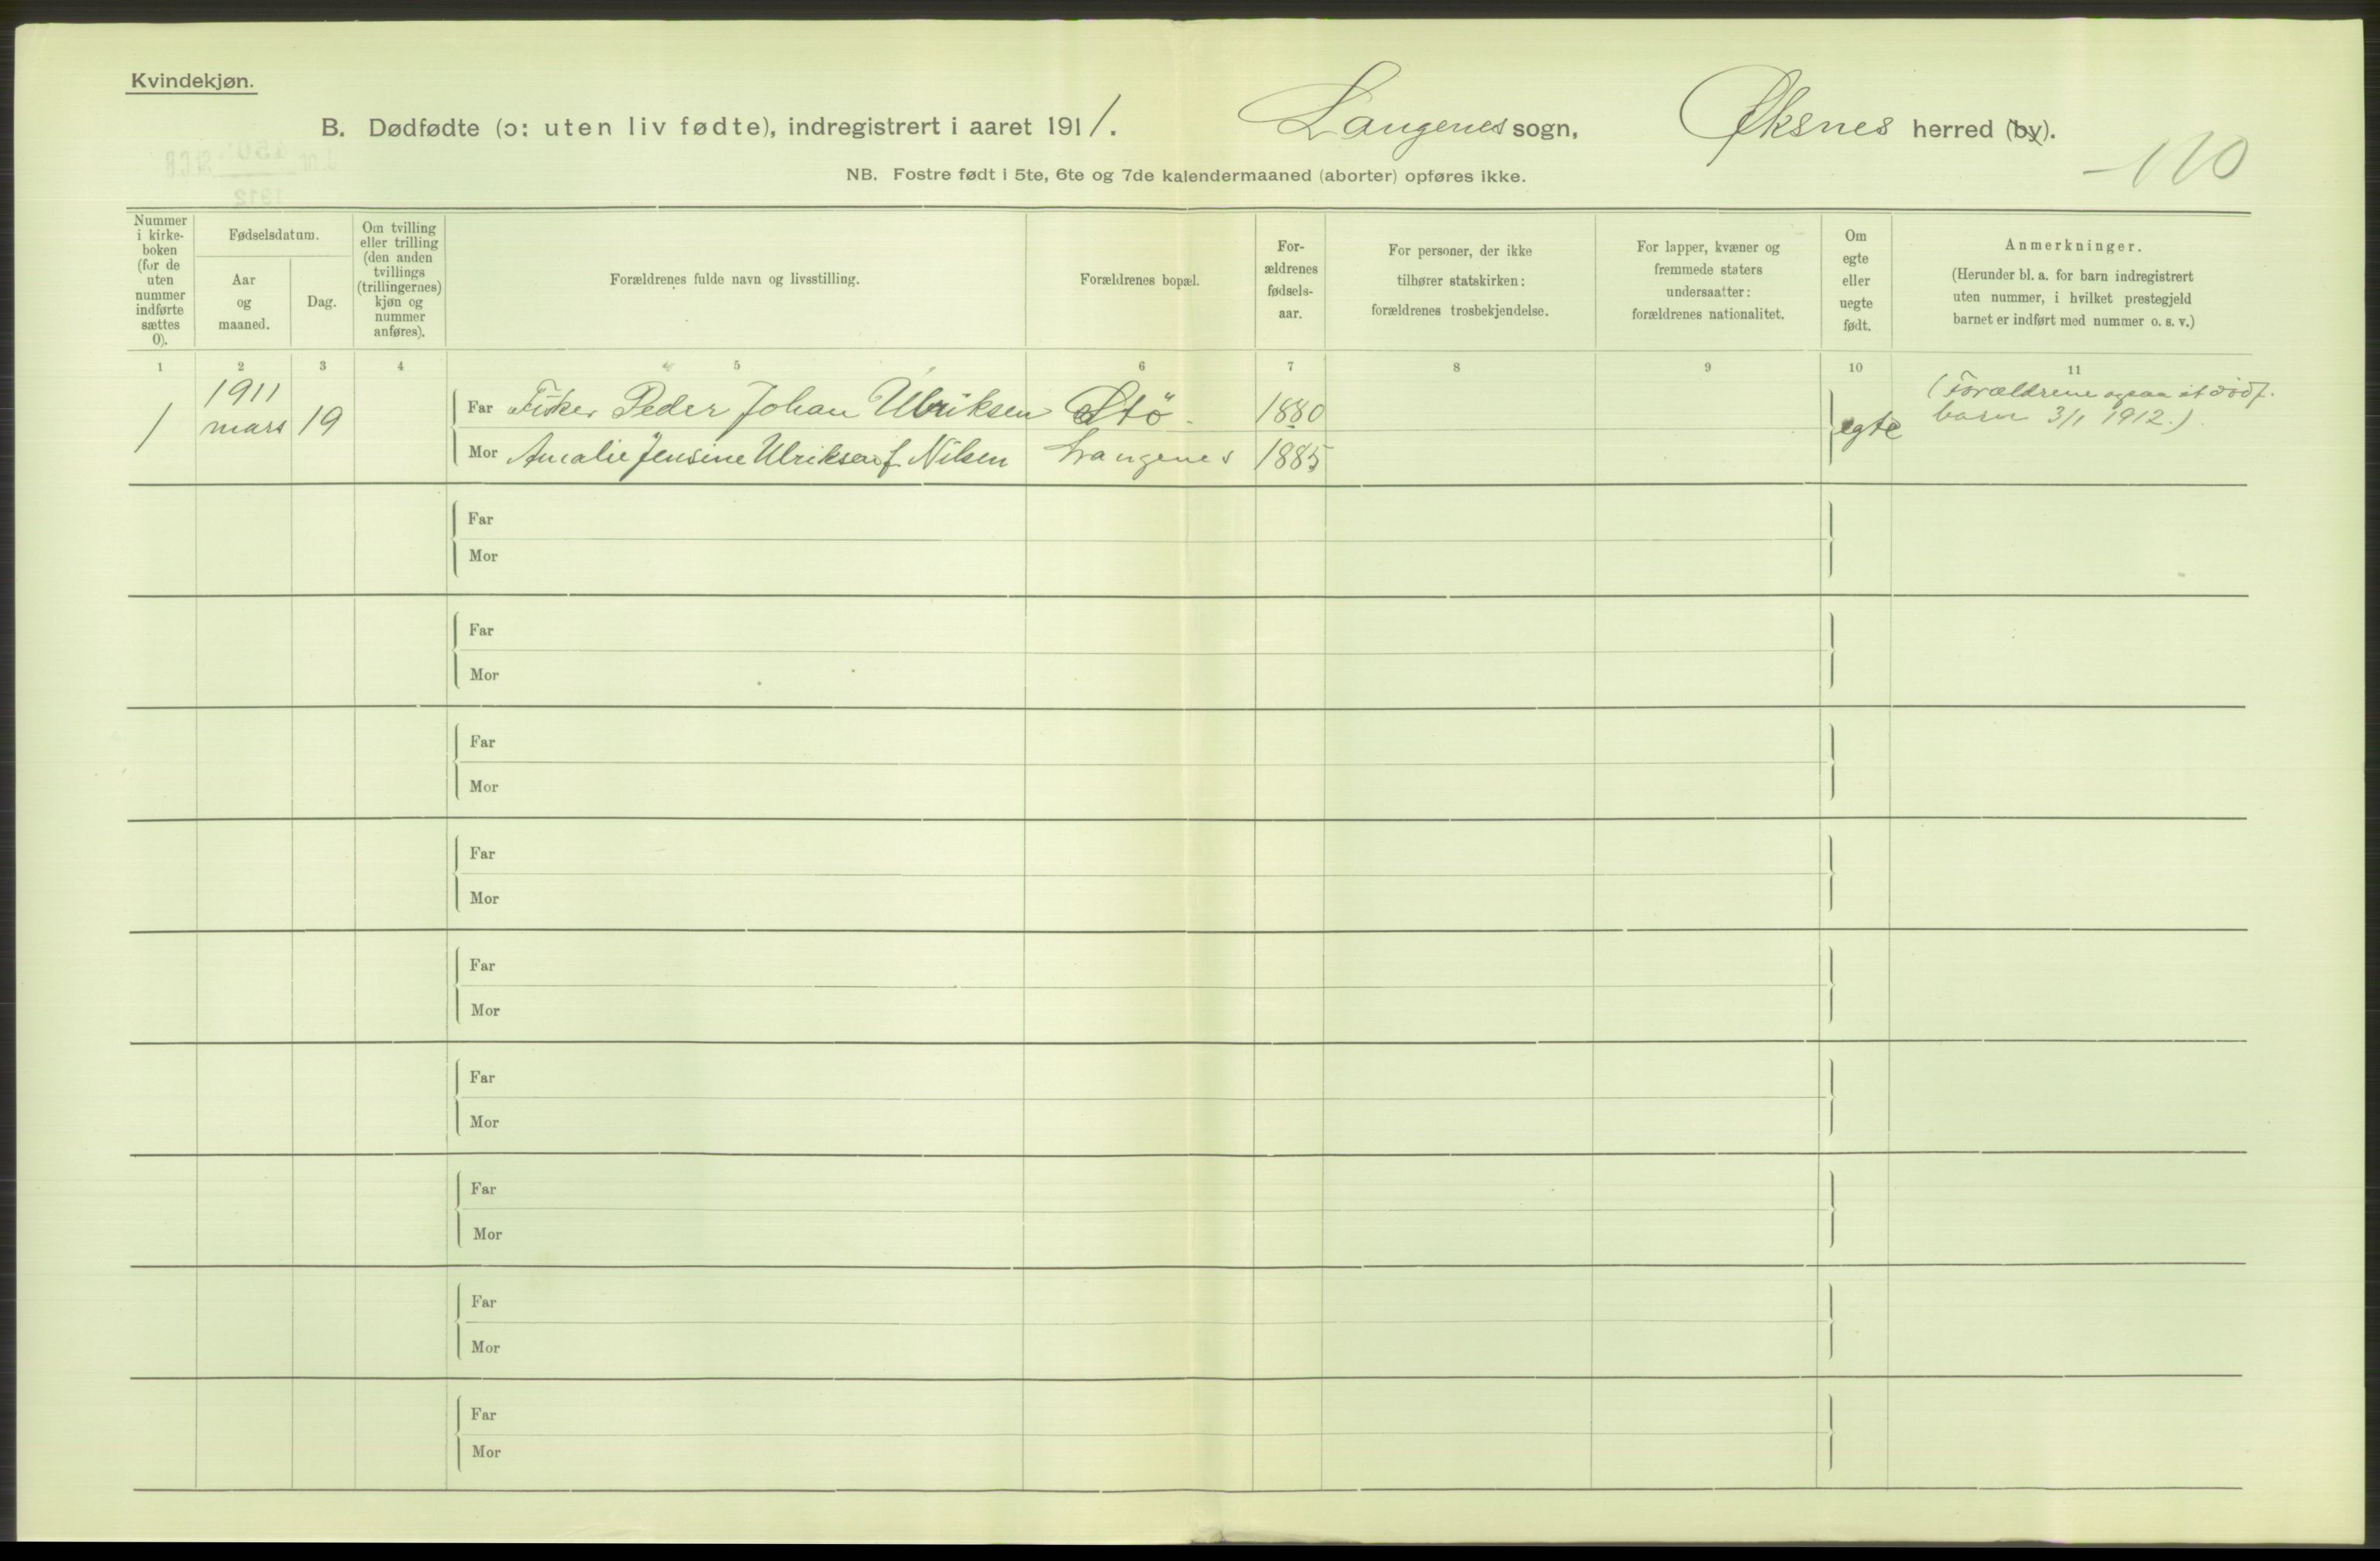 Kvindekjøn.
B. Dødfødte (ɔ: uten liv fødte), indregistrert i aaret 1911. Langenes sogn, Øksnes herred (by).
NB. Fostre født i 5te, 6te og 7de kalendermaaned (aborter) opføres ikke.
110
Nummer
i kirke-
boken
(for de
uten
nummer
indførte
sættes
0).
Fødselsdatum.
Aar
og
maaned.
Dag.
Om tvilling
eller trilling
(den anden
tvillings
(trillingernes)
kjøn og
nummer
anføres).
Forældrenes fulde navn og livsstilling.
Forældrenes bopæl.
For-
ældrenes
fødsels-
aar.
For personer, der ikke
tilhører statskirken:
forældrenes trosbekjendelse.
For lapper, kvæner og
fremmede staters
undersaatter:
forældrenes nationalitet.
Om
egte
eller
uegte
født.
Anmerkninger.
(Herunder bl. a. for barn indregistrert
uten nummer, i hvilket prestegjeld
barnet er indført med nummer o. s. v.)
1 2 3 4 5 6 7 8 9 10 11
1 1911 mars 19
Far Fisker Peder Johan Ulriksen Stö 1880
Mor Amalie Jensine Ulriksen f. Nilsen Langenes 1885
egte
(Forældrene ogsaa et dødf.
barn 3/1 1912.)
Far
Mor
Far
Mor
Far
Mor
Far
Mor
Far
Mor
Far
Mor
Far
Mor
Far
Mor
Far
Mor